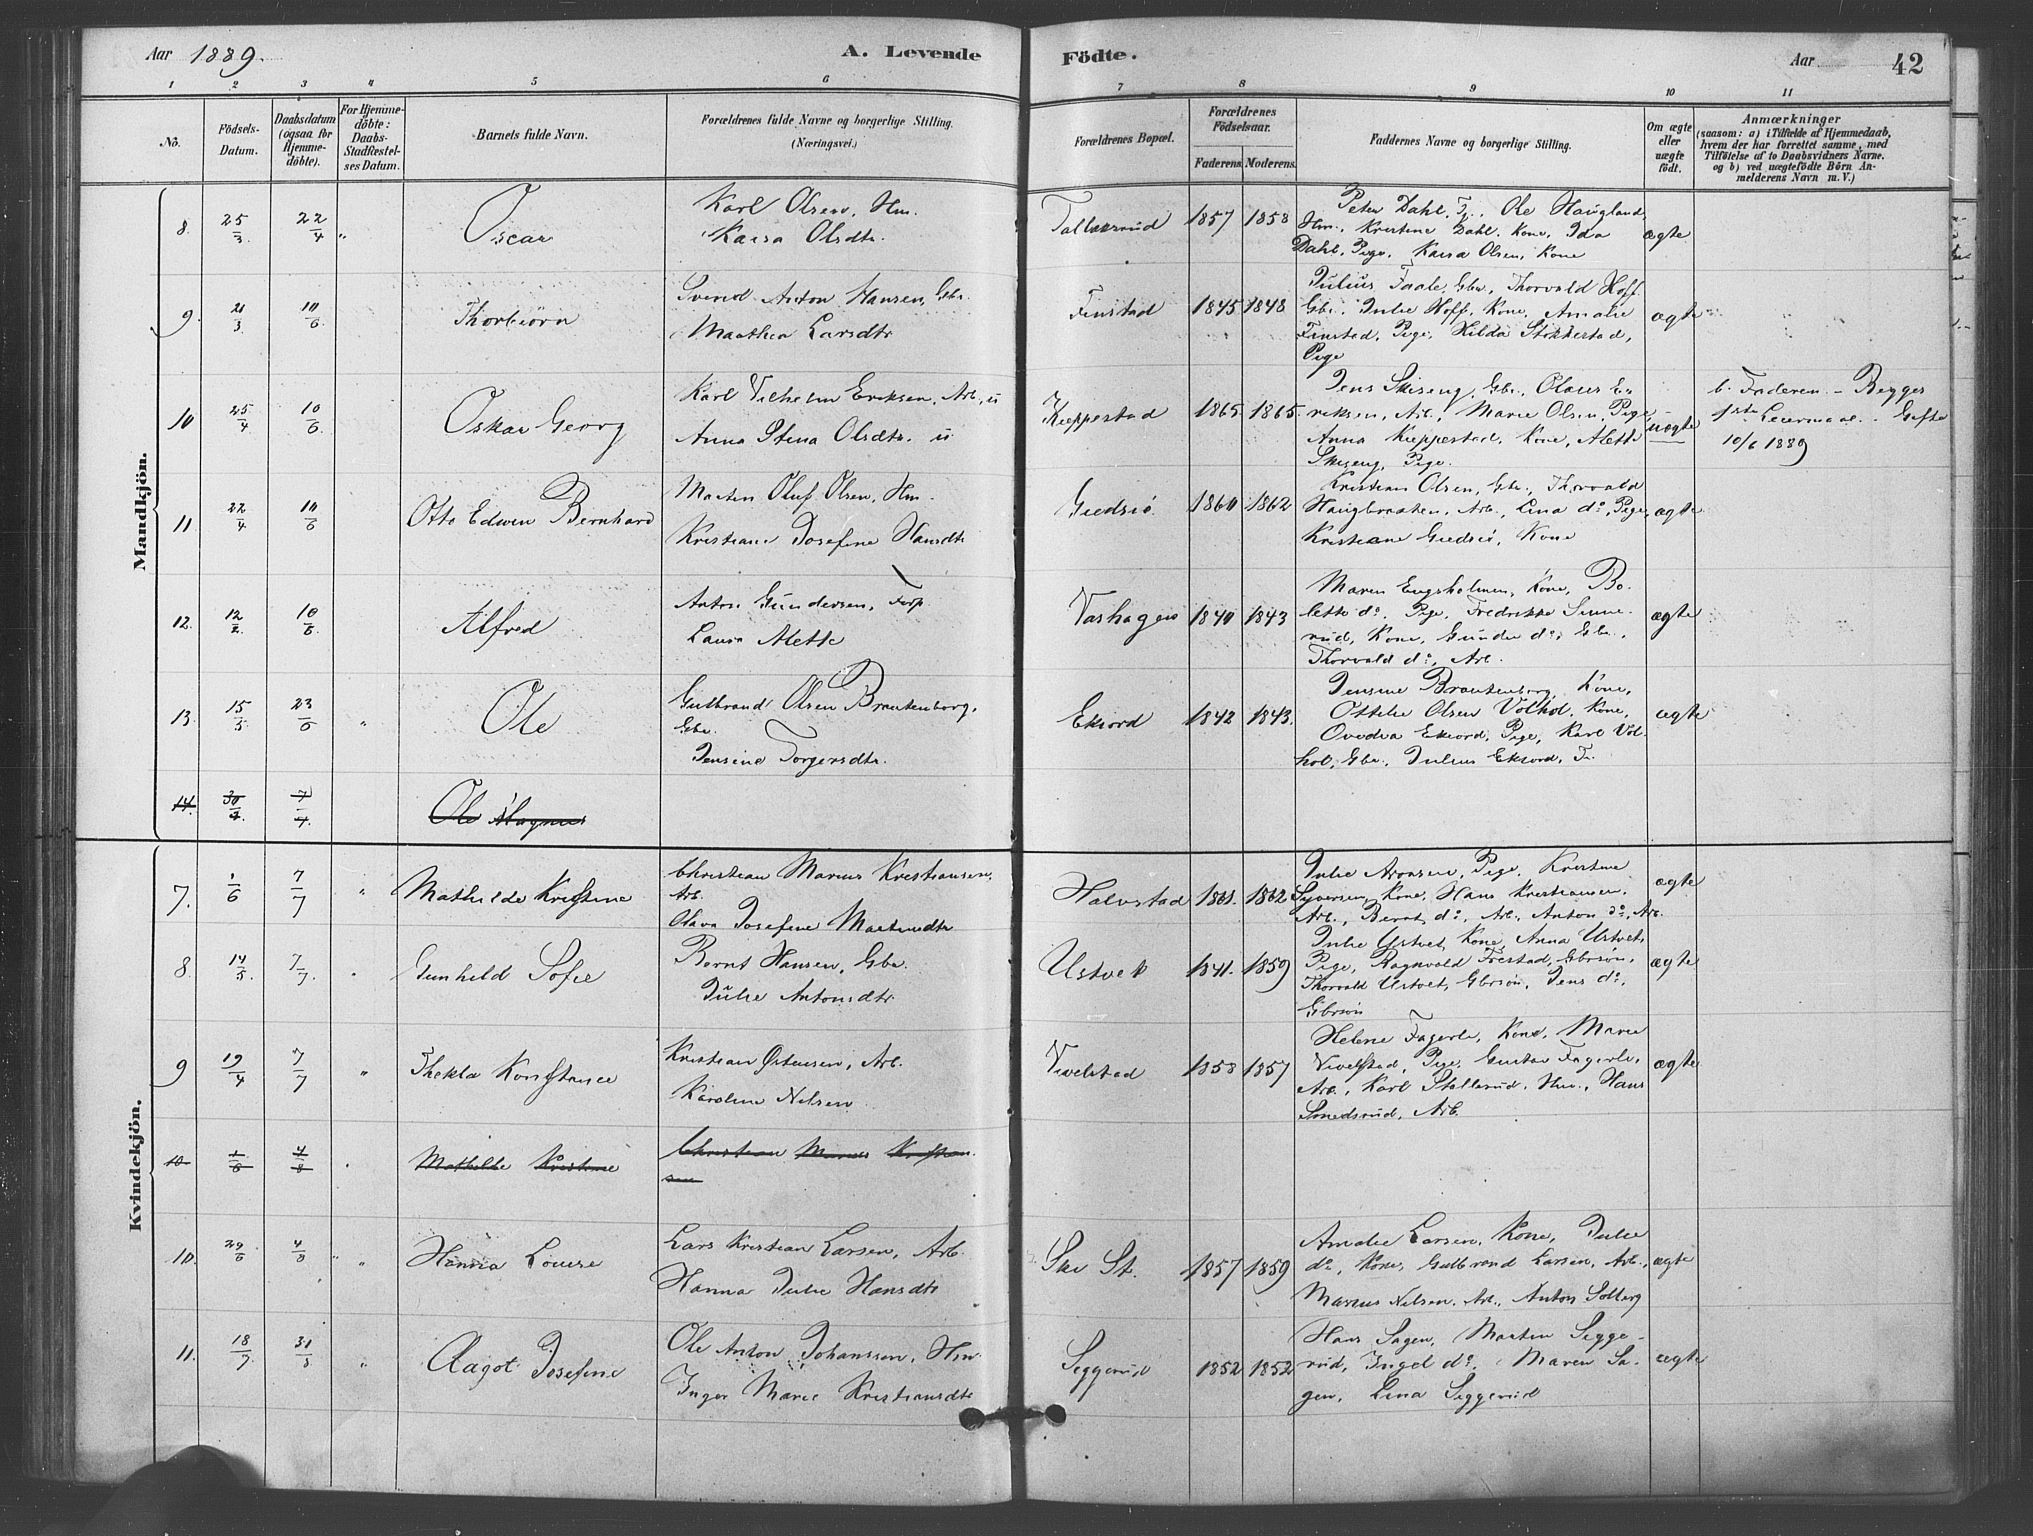 Aar 1889. A. Levende Födte. Aar 42
1 2 3 4 5 6 7 8 9 10 11
No. Födsels-Datum. Daabsdatum (ogsaa for Hjemmedöbte). For Hjemmedöbte: Daabs-Stadfæstelses Datum. Barnets fulde Navn. Forældrenes fulde Navne og borgerlige Stilling. (Næringsvei.) Forældrenes Bopæl. Forældrenes Födselsaar. Faderens. Moderens. Faddernes Navne og borgerlige Stilling. Om ægte eller uægte födt. Anmærkninger (saasom: a) i Tilfælde af Hjemmedaab, hvem der har forrettet samme, med Tilföielse af to Daabsvidners Navne. og b) ved uægtefödte Börn Anmelderens Navn m. V.)
Mandkjön.
8. 25/3. 22/4 " Oscar
Karl Olsen, Hm.
Kaisa Olsdtr.
1857 1858
Peter Dahl, Ole Haugland,
Hm., Kristine Dahl, Kone, Ida
Dahl, Pige, Kaisa Olsen, Kone
ægte
9. 21/3 10/6 Thorbiørn
Svend Anton Hansen, Gbr.
Maathea Larsdtr
Finstad 1845 1848
Julius Faale, Gbr., Thorvald Hoff
Gbr., Julie Hoff, Kone, Amalie
Finstad, Pige, Hilda Stokkestad,
Pige
ægte
10 25/4 10/6 Oskar Georg
Karl Vilhelm Eriksen, Arb., u
Anna Stina Olsdtr. u
Kieppestad 1865. 1865.
Jens Skiseng, Gbr., Olaus E-
riksen, Arb., Marie Olsen, Pige
Anna Kieppestad, Kone, Alette
Skiseng, Pige.
uægte
b. Faderen. - Begges
1ste Leiermaal. - Gifte
10/6 1889
11 22/4 10/6 Otto Edwin Bernhard
Martin Oluf Olsen, Hm.
Kristiane Josefine Hansdtr
Giedsiø 1860 1862
Kristian Olsen, Gbr., Thorvald
Haugbraaten, Arb., Lina do, Pige,
Kristiane Giedsiø, Kone
ægte
12. 12/2 10/6 Alfred
Anton Gundersen, Forp.
Laura Alette
1840 1843
Maren Engsholmen, Kone, Bo-
lette do, Pige, Fredrikke Sinne-
rud, Kone, Gunder do, Gbr.,
Thorvald do, Arb.
ægte
13. 15/3 23/6 " Ole
Gulbrand Olsen Brantenborg,
Gbr.
Jensine Torgersdtr.
Eksord 1842 1843.
Jensine Brantenborg, Kone,
Ottilie Olsen Volhol, Kone,
Ovedia Eksord, Pige, Karl Vol-
hol, Gbr., Julius Eksord, F.
ægte
14. 30/4 7/4. Ole Magnus
Kvindekjön.
7. 1/6 7/7 " Mathilde Kristine
Christian Marius Kristiansen,
Arb.
Olava Josefine Martinsdtr
Halvstad 1861. 1862
Julie Aronsen, Pige, Kristine
Syversen, Kone, Hans Kristiansen,
Arb., Bernt do, Arb., Anton do, Arb.
ægte
8. 14/5. 7/7. " Gunhild Sofie
Bernt Hansen, Gbr.
Julie Antonsdtr
Ustvet 1841. 1859
Julie Ustvet, Kone, Anna Ustvet,
Pige, Ragnvald Frestad, Gbrsön,
Thorvald Ustvet, Gbrsön, Jens do,
Gbrsön
ægte
9 19/4 7/7 " Thekla Konstance
Kristian Østensen, Arb.
Karoline Nilsen
Vevelstad 1858 1857
Helene Fagerli, Kone, Marie
Vevelstad, Pige, Gustav Fagerli,
Arb., Karl Stallerud, Hm., Hans
Smedsrud, Arb.
ægte
10 1/6 4/8 Mathilde Kristine
Christian Marius Kristian-
sen
10. 29/6 4/8 " Hanna Lovise
Lars Kristian Larsen, Arb.
Hanna Julie Hansdtr
Ski St. 1857 1859
Amalie Larsen, Kone, Julie
do, Kone, Gulbrand Larsen, Arb.,
Marius Nilsen, Arb., Anton Solberg
ægte
11. 18/7. 31/8 " Aagot Josefine
Ole Anton Johanssen, Hm.
Inger Marie Kristiansdtr
Seggerud 1852 1852
Hans Sagen, Martin Segge-
rud, Ingel do, Maren Sa-
gen, Lina Seggerud
ægte